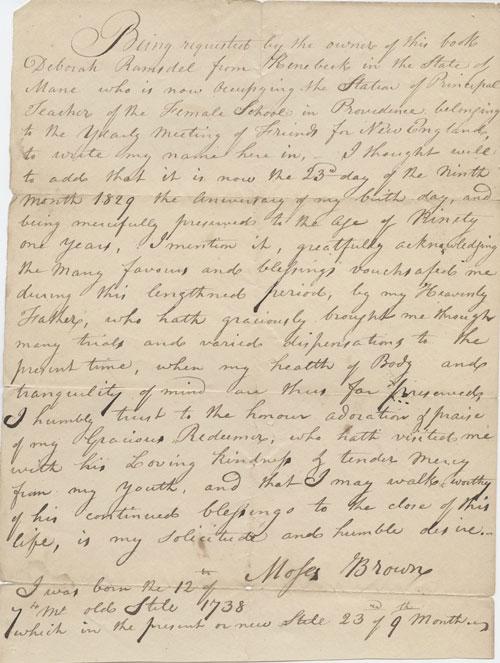 Being requested by the owner of this book
Deborah Ramsdel from Kenebeck in the State of
Mane who is now Occupying the Station of Principal
Teacher of the Female School in Providence belonging
to the Yearly Meeting of Friends for New England,
to write my name here in, – I thought well
to add that it is now the 23rd day of the Ninth
Month 1829 the Aniversary of my birth day, and
being mercifully preserved to the Age of Ninety
one Years, I mention it, greatfully acknowledging
the Many favours and blessings vouchsafed me
during this lengthned period, by my Heavenly
Father, who hath graciously brought me through
many trials and varied dispensations to the
present time, when my health of Body and
tranquility of mind are thus far preserved
I humbly trust to the honour adoration & praise
of my Gracious Redeemer, who hath visited me
with his Loving kindness & tender Mercy
from my Youth, and that I may walk worthy
of his continued blessings to the close of this
life, is my Solicitude and humble desire.–
Moses Brown
I was born the 12th of
7th Mo. old Stile 1738
which in the present or new Stile 23rd of 9th Month